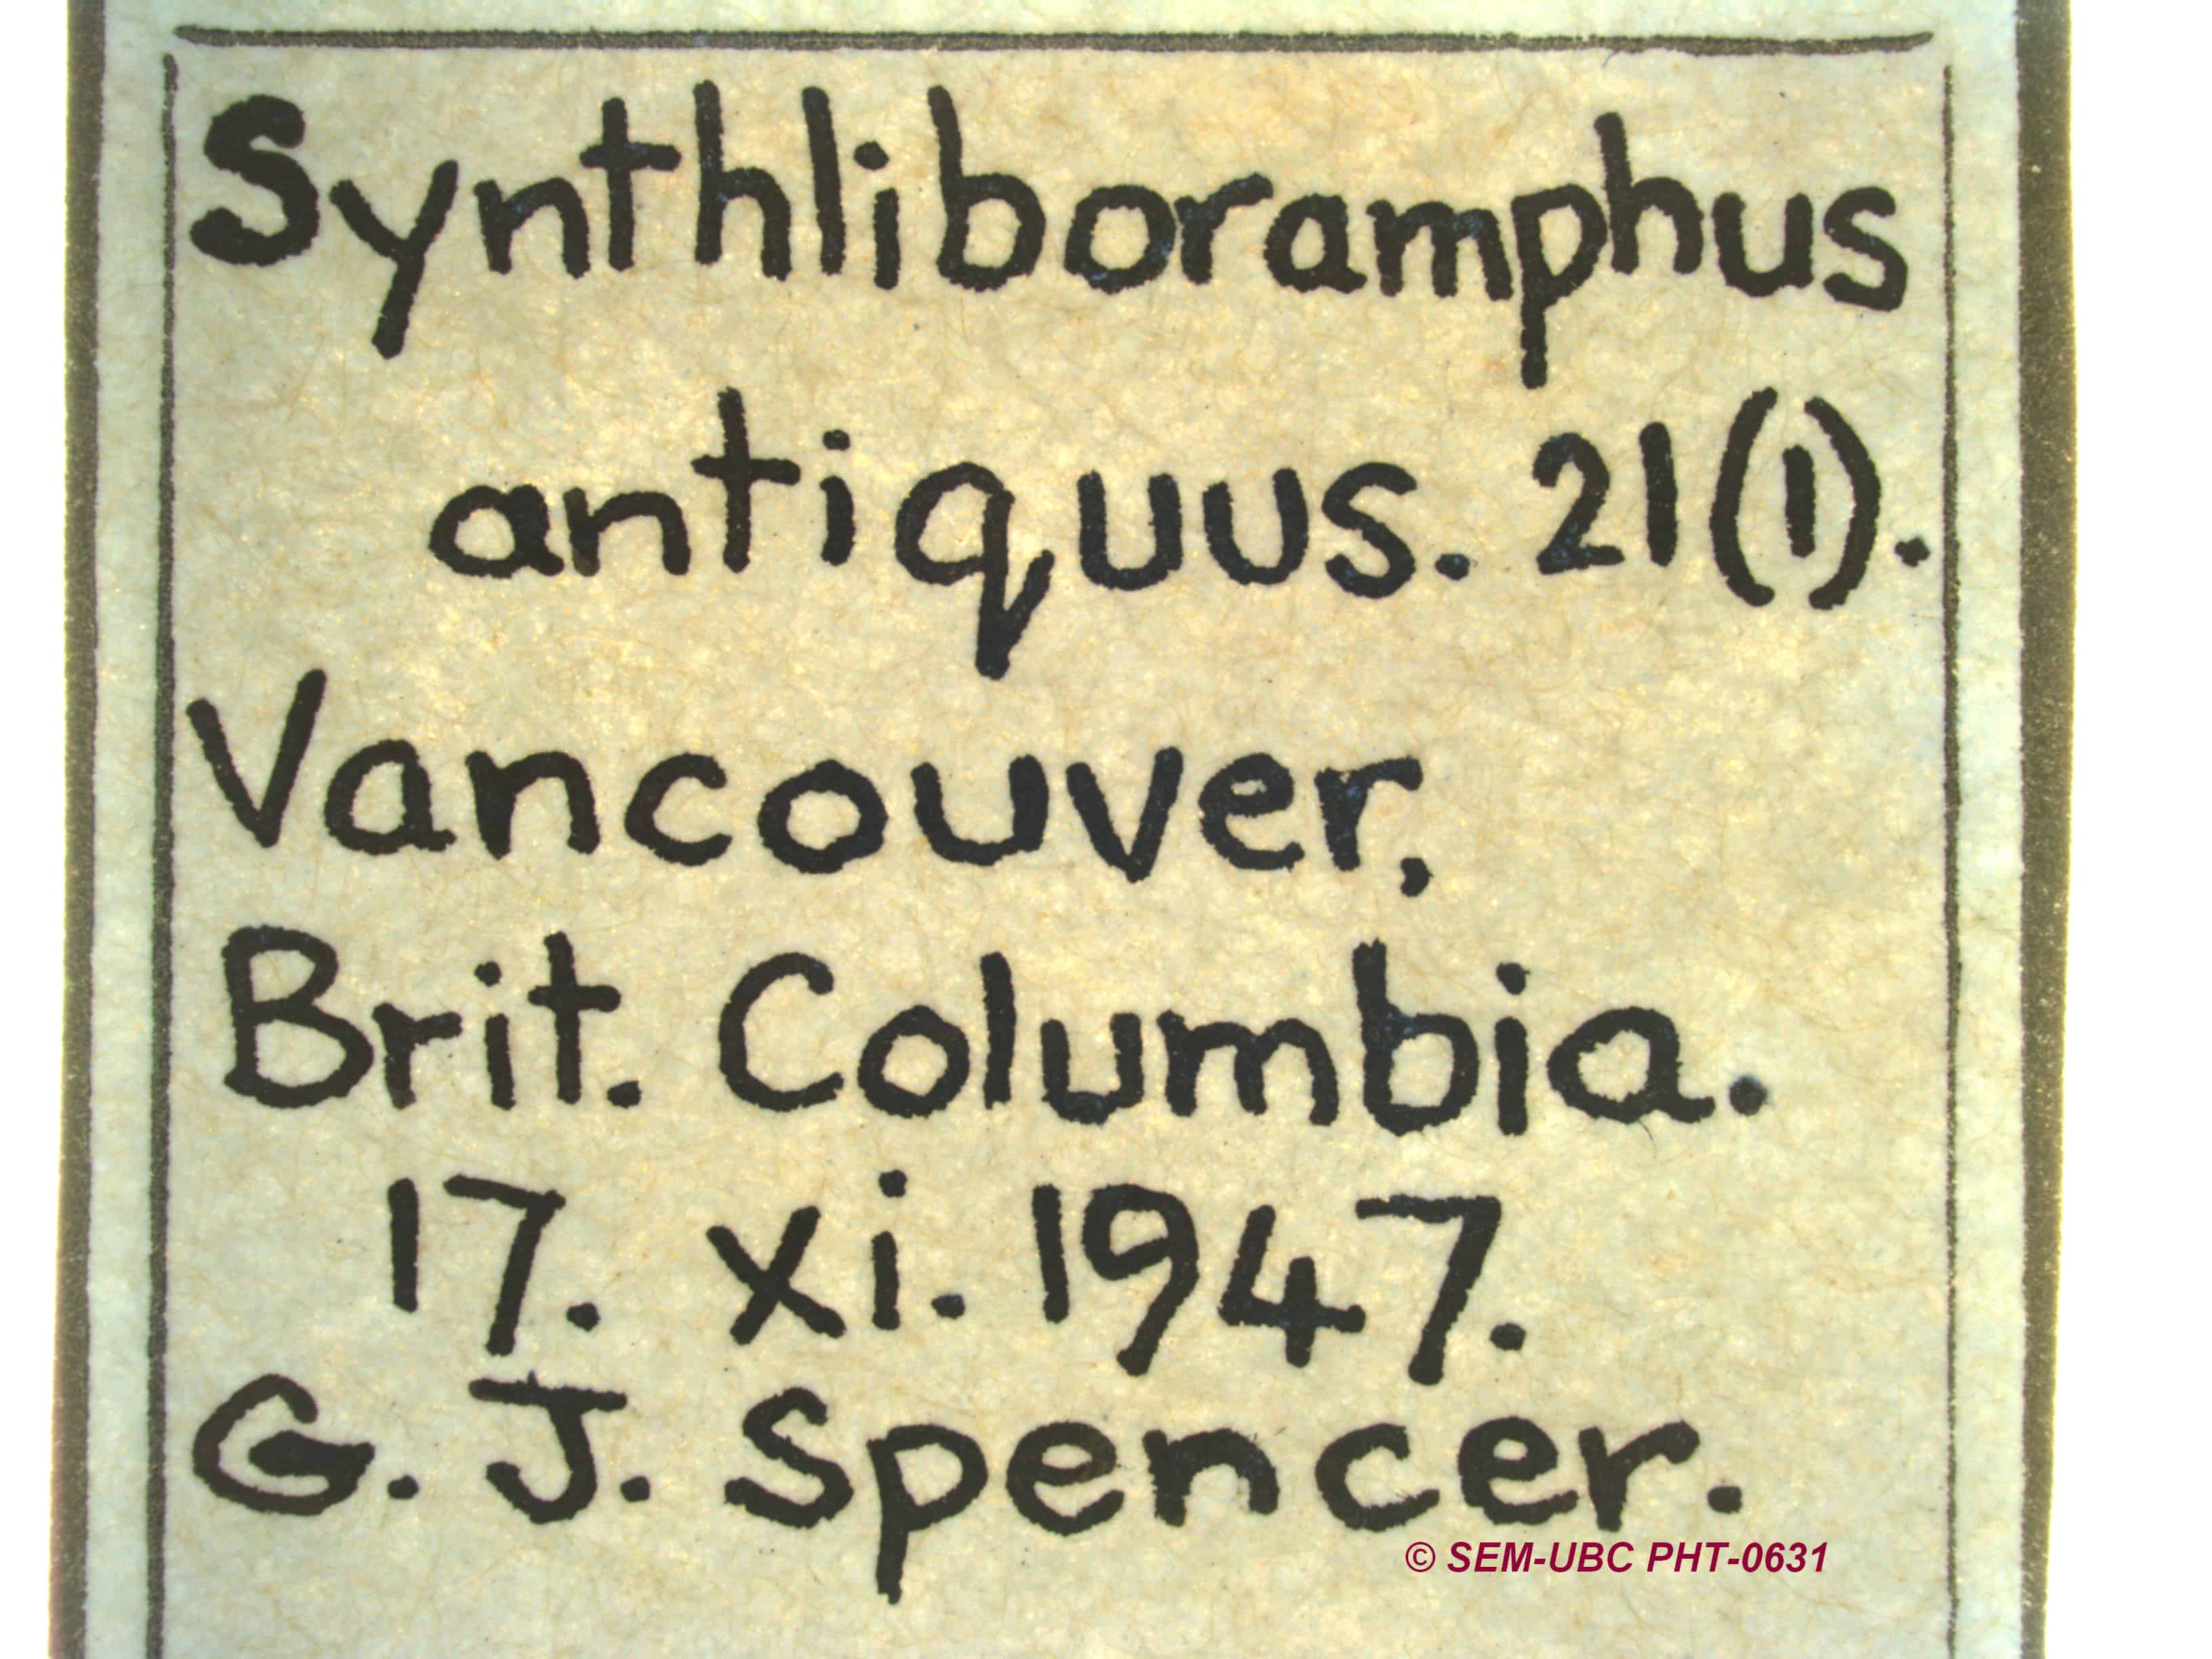 Synthliboramphus
antiquus. 21(1).
Vancouver,
Brit. Columbia.
17. xi. 1947.
G. J. Spencer.
© SEM-UBC PHT-0631